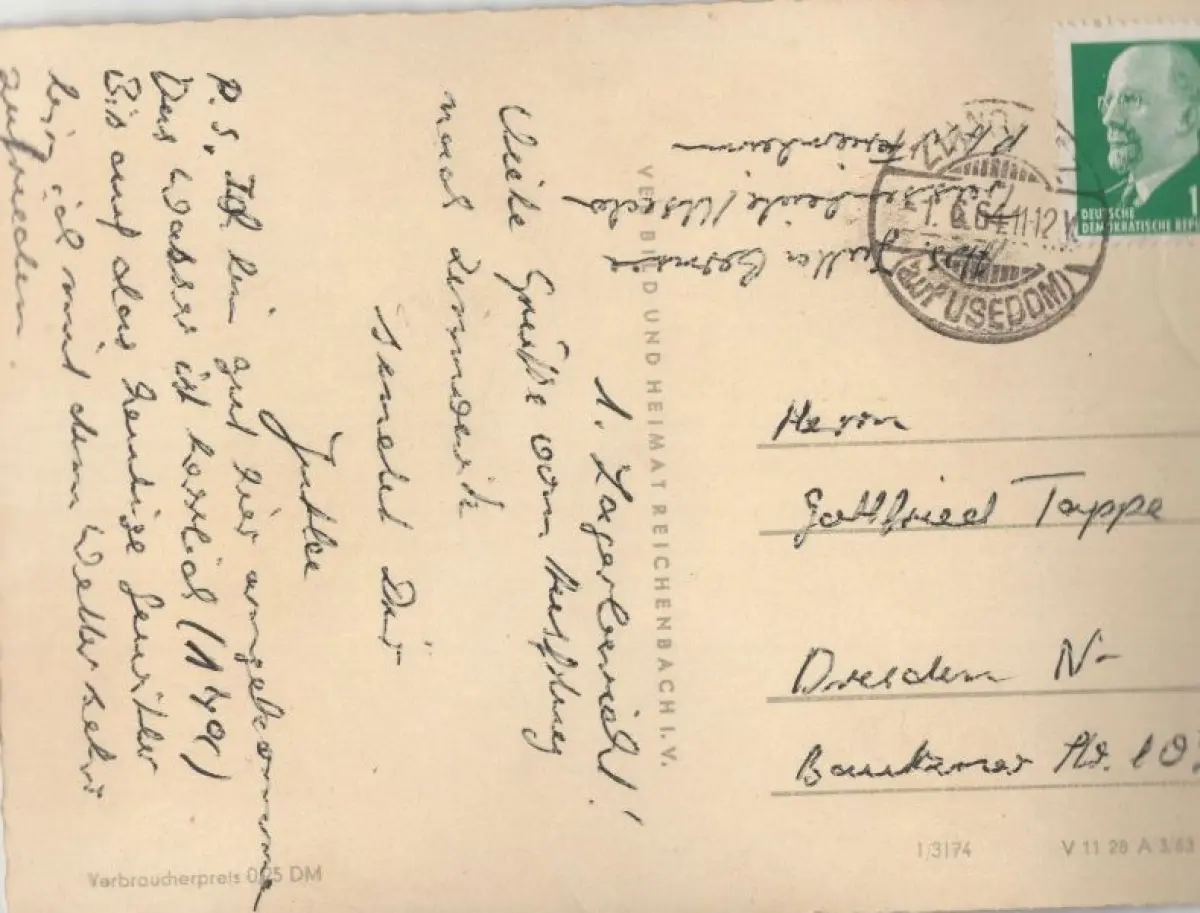 1. Lagerbericht!
Viele Grüße vom
nach Zinnowitz
sendet Dir
Jutta
P.S. Ich bin gut hier angekommen
Das Wasser ist herrlich (17°)
Bis auf das heutige Gewitter
bin ich mit dem Wetter sehr
zufrieden.
VEB BILD UND HEIMAT REICHENBACH I. V.
Verbraucherpreis 0,25 DM
DEUTSCHE
DEMOKRATISCHE REP
ZINNO
1. 6.64 11-12 V
(auf USEDOM)
Herrn
Gottfried Tappe
Dresden N-
Bautzner Str. 10
1/3174
V 11 28 A 3/63